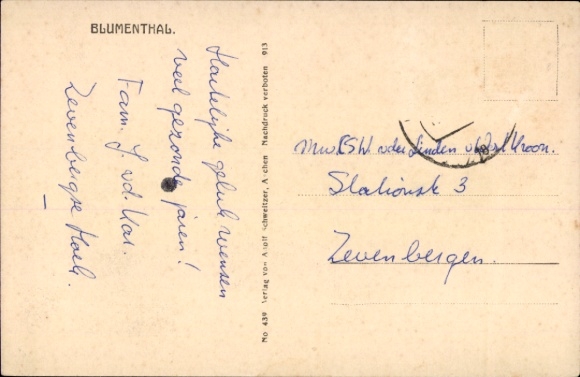 BLUMENTHAL.
Hartelijke geluk wensen
veel gezonde jaren!
Fam. J. vd. Kar.
Zevenbergse Hoek.
No 439 Verlag von Adolf Schweitzer, Aachen Nachdruck verboten 913
v der Linden
Stationsk 3
Zevenbergen.